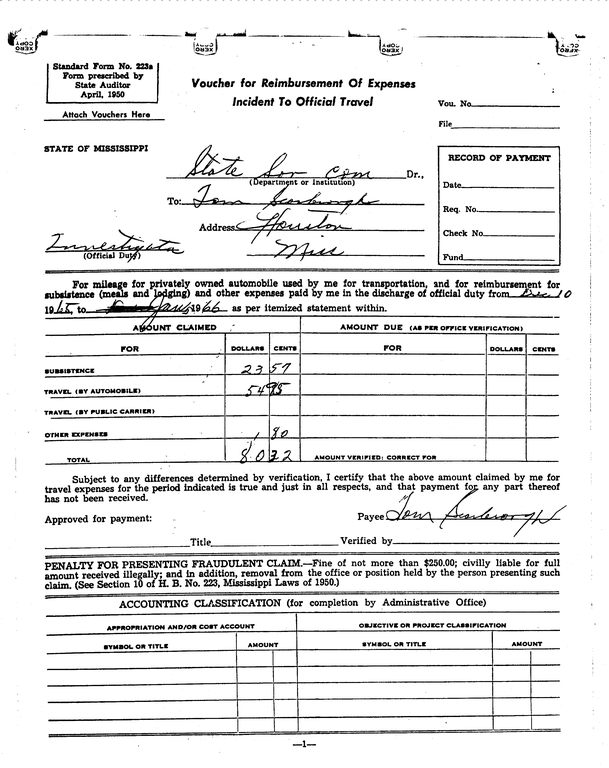 XERO COPY XERO COPY XERO COPY XERO COPY
Standard Form No. 223a
Form prescribed by
State Auditor
April, 1950
Attach Vouchers Here
Voucher for Reimbursement Of Expenses
Incident To Official Travel
Vou. No.
File
STATE OF MISSISSIPPI
State Sov Com Dr.,
(Department or Institution)
To: Tom Scarbrough
Address Houston
Miss
Investigator
(Official Duty)
RECORD OF PAYMENT
Date
Req. No.
Check No.
Fund
For mileage for privately owned automobile used by me for transportation, and for reimbursement for
subsistence (meals and lodging) and other expenses paid by me in the discharge of official duty from Dec 10
1965, to 1966 as per itemized statement within.
AMOUNT CLAIMED AMOUNT DUE (AS PER OFFICE VERIFICATION)
FOR DOLLARS CENTS FOR DOLLARS CENTS
SUBSISTENCE 23 57
TRAVEL (BY AUTOMOBILE) 54 95
TRAVEL (BY PUBLIC CARRIER)
OTHER EXPENSES 1 80
TOTAL 80 32 AMOUNT VERIFIED: CORRECT FOR
Subject to any differences determined by verification, I certify that the above amount claimed by me for
travel expenses for the period indicated is true and just in all respects, and that payment for any part thereof
has not been received.
Approved for payment: Payee Tom Scarbrough
Title Verified by
PENALTY FOR PRESENTING FRAUDULENT CLAIM.—Fine of not more than $250.00; civilly liable for full
amount received illegally; and in addition, removal from the office or position held by the person presenting such
claim. (See Section 10 of H. B. No. 223, Mississippi Laws of 1950.)
ACCOUNTING CLASSIFICATION (for completion by Administrative Office)
APPROPRIATION AND/OR COST ACCOUNT OBJECTIVE OR PROJECT CLASSIFICATION
SYMBOL OR TITLE AMOUNT SYMBOL OR TITLE AMOUNT
—1—